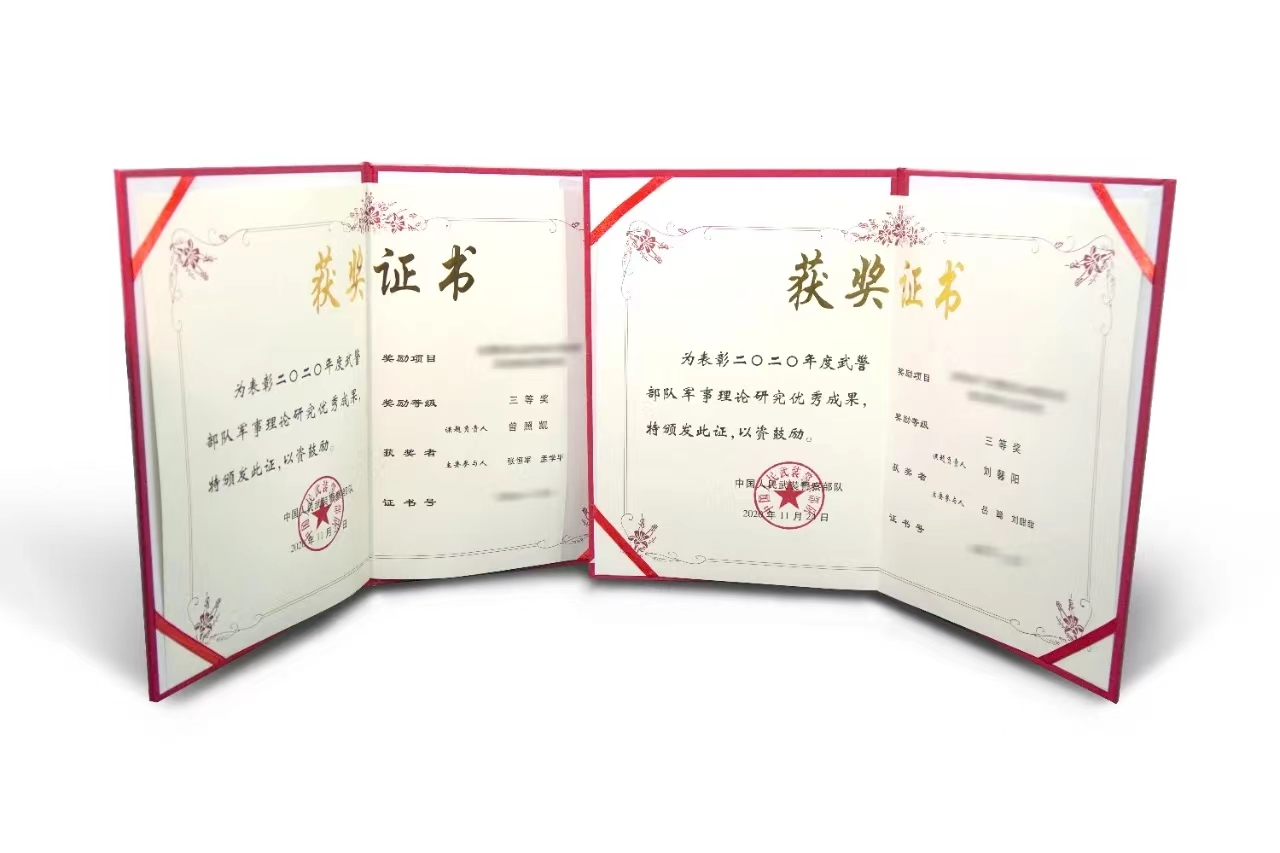 获奖证书
为表彰二〇二〇年度武警
部队军事理论研究优秀成果,
特颁发此证,以资鼓励。
中国人民武装警察部队
2020年11月2日
奖励项目
奖励等级 三等奖
获奖者
课题负责人 曾照凯
主要参与人 张恒军 孟学华
证书号
获奖证书
为表彰二〇二〇年度武警
部队军事理论研究优秀成果,
特颁发此证,以资鼓励。
中国人民武装警察部队
2020年11月2日
奖励项目
奖励等级 三等奖
获奖者
课题负责人 刘馨阳
主要参与人 岳 刘甜甜
证书号